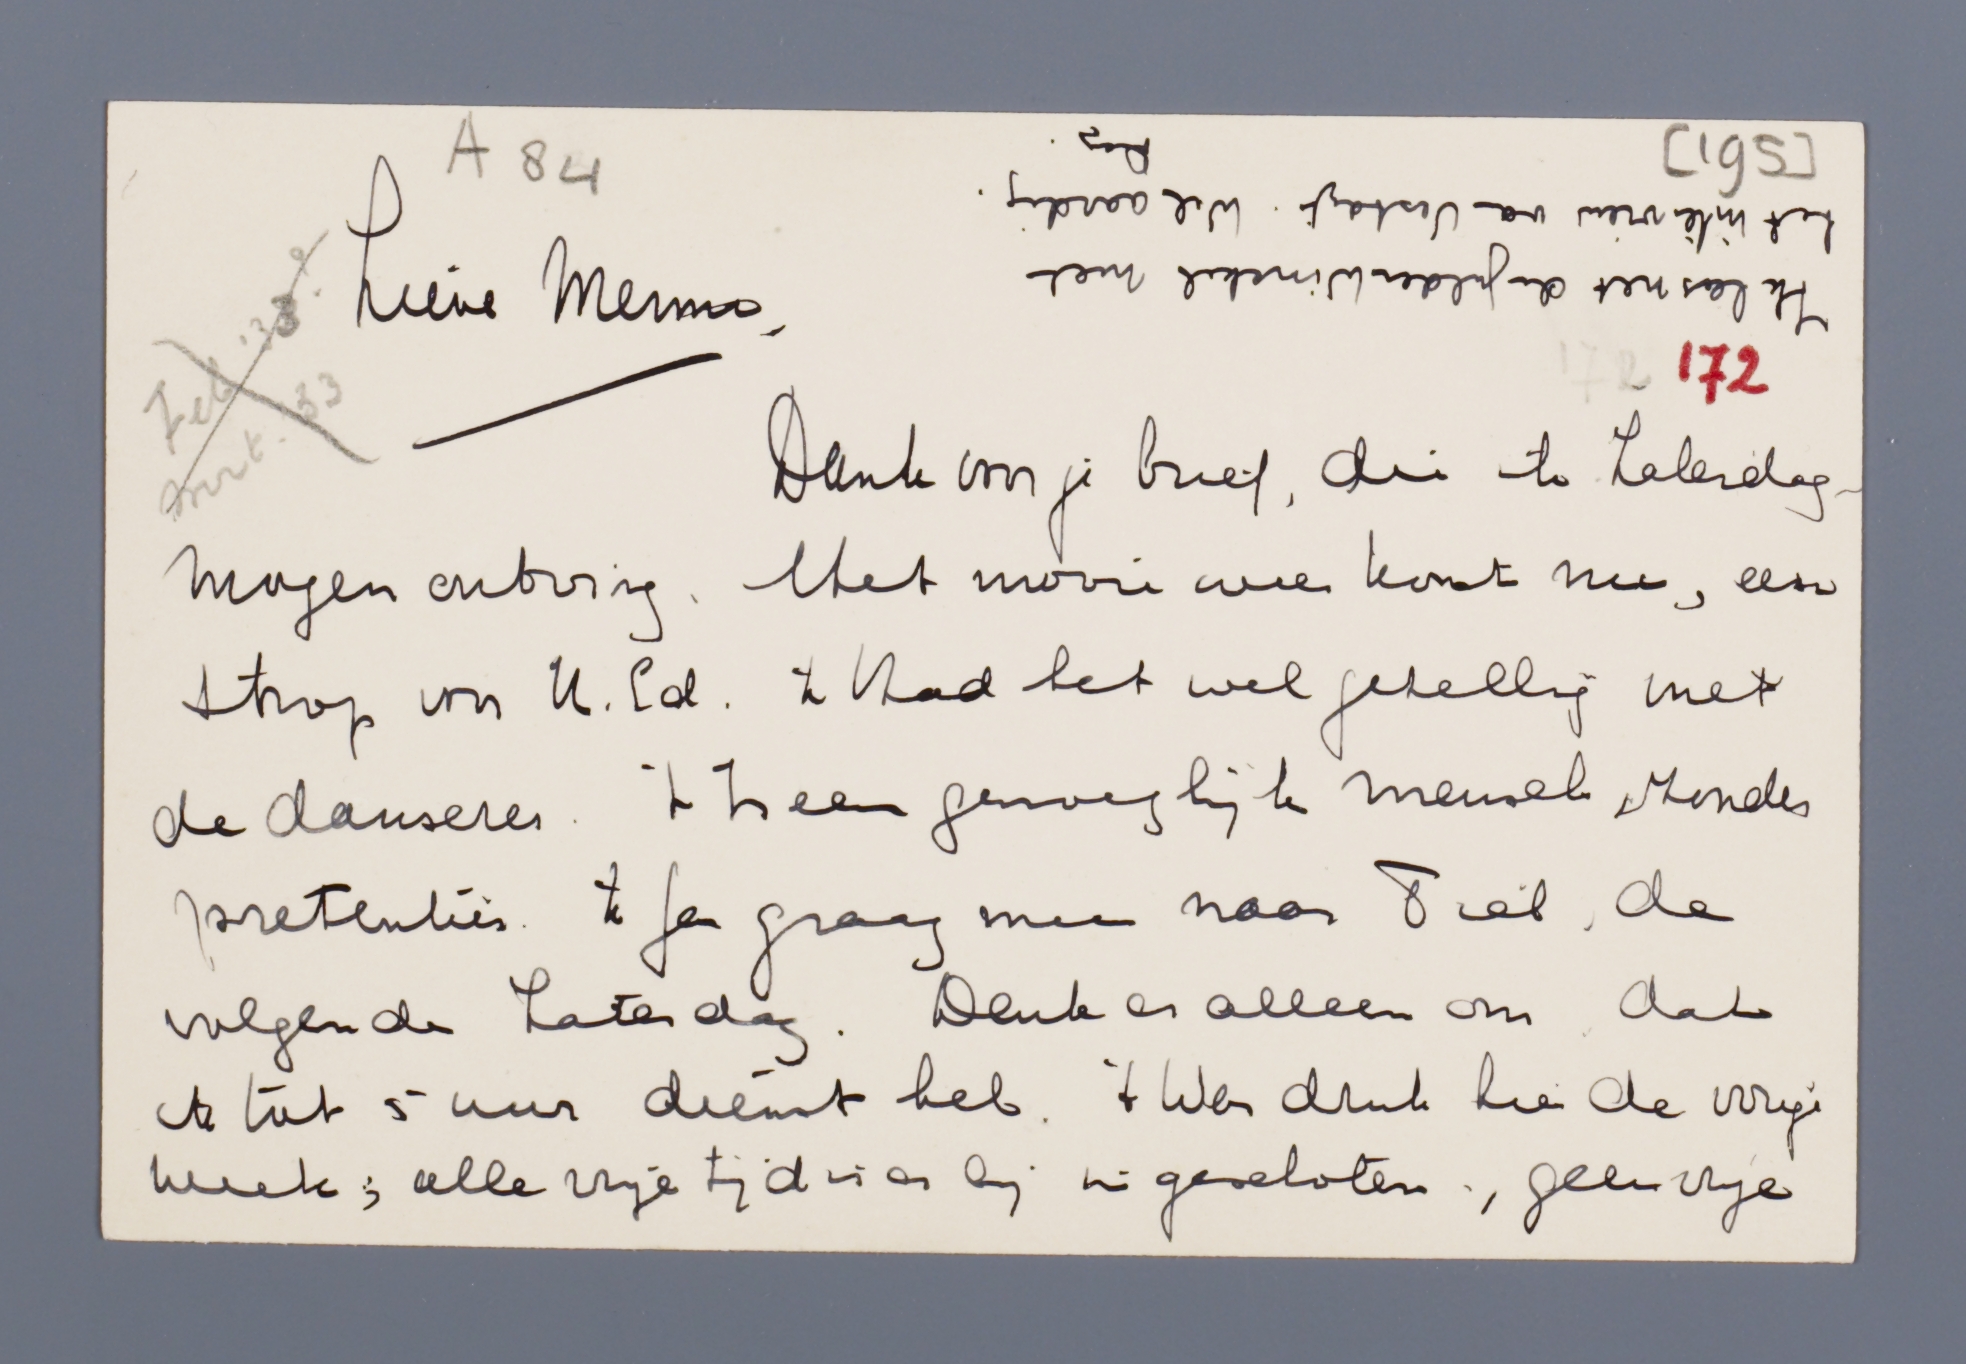 A 84
[195]
Lieve Menno,
172 172
Dank voor je brief, die ik Zaterdag-
morgen ontving. Het mooie weer komt nu, een
strop voor U.Ed. Ik Had het wel gezellig met
de danseres. 't Is een genoeglijk mensch, zonder
pretenties. Ik ga graag mee naar Tiel, de
volgende Zaterdag. Denk er alleen om dat
ik tot 5 uur dienst heb. 't Was druk hier de vorige
week; alle vrije tijd is er bij ingeschoten, geen vrije
Ik las net den gulden Winckel met
het interview van Vestdijk. Wel aardig.
Dag.
Feb '33?
'33